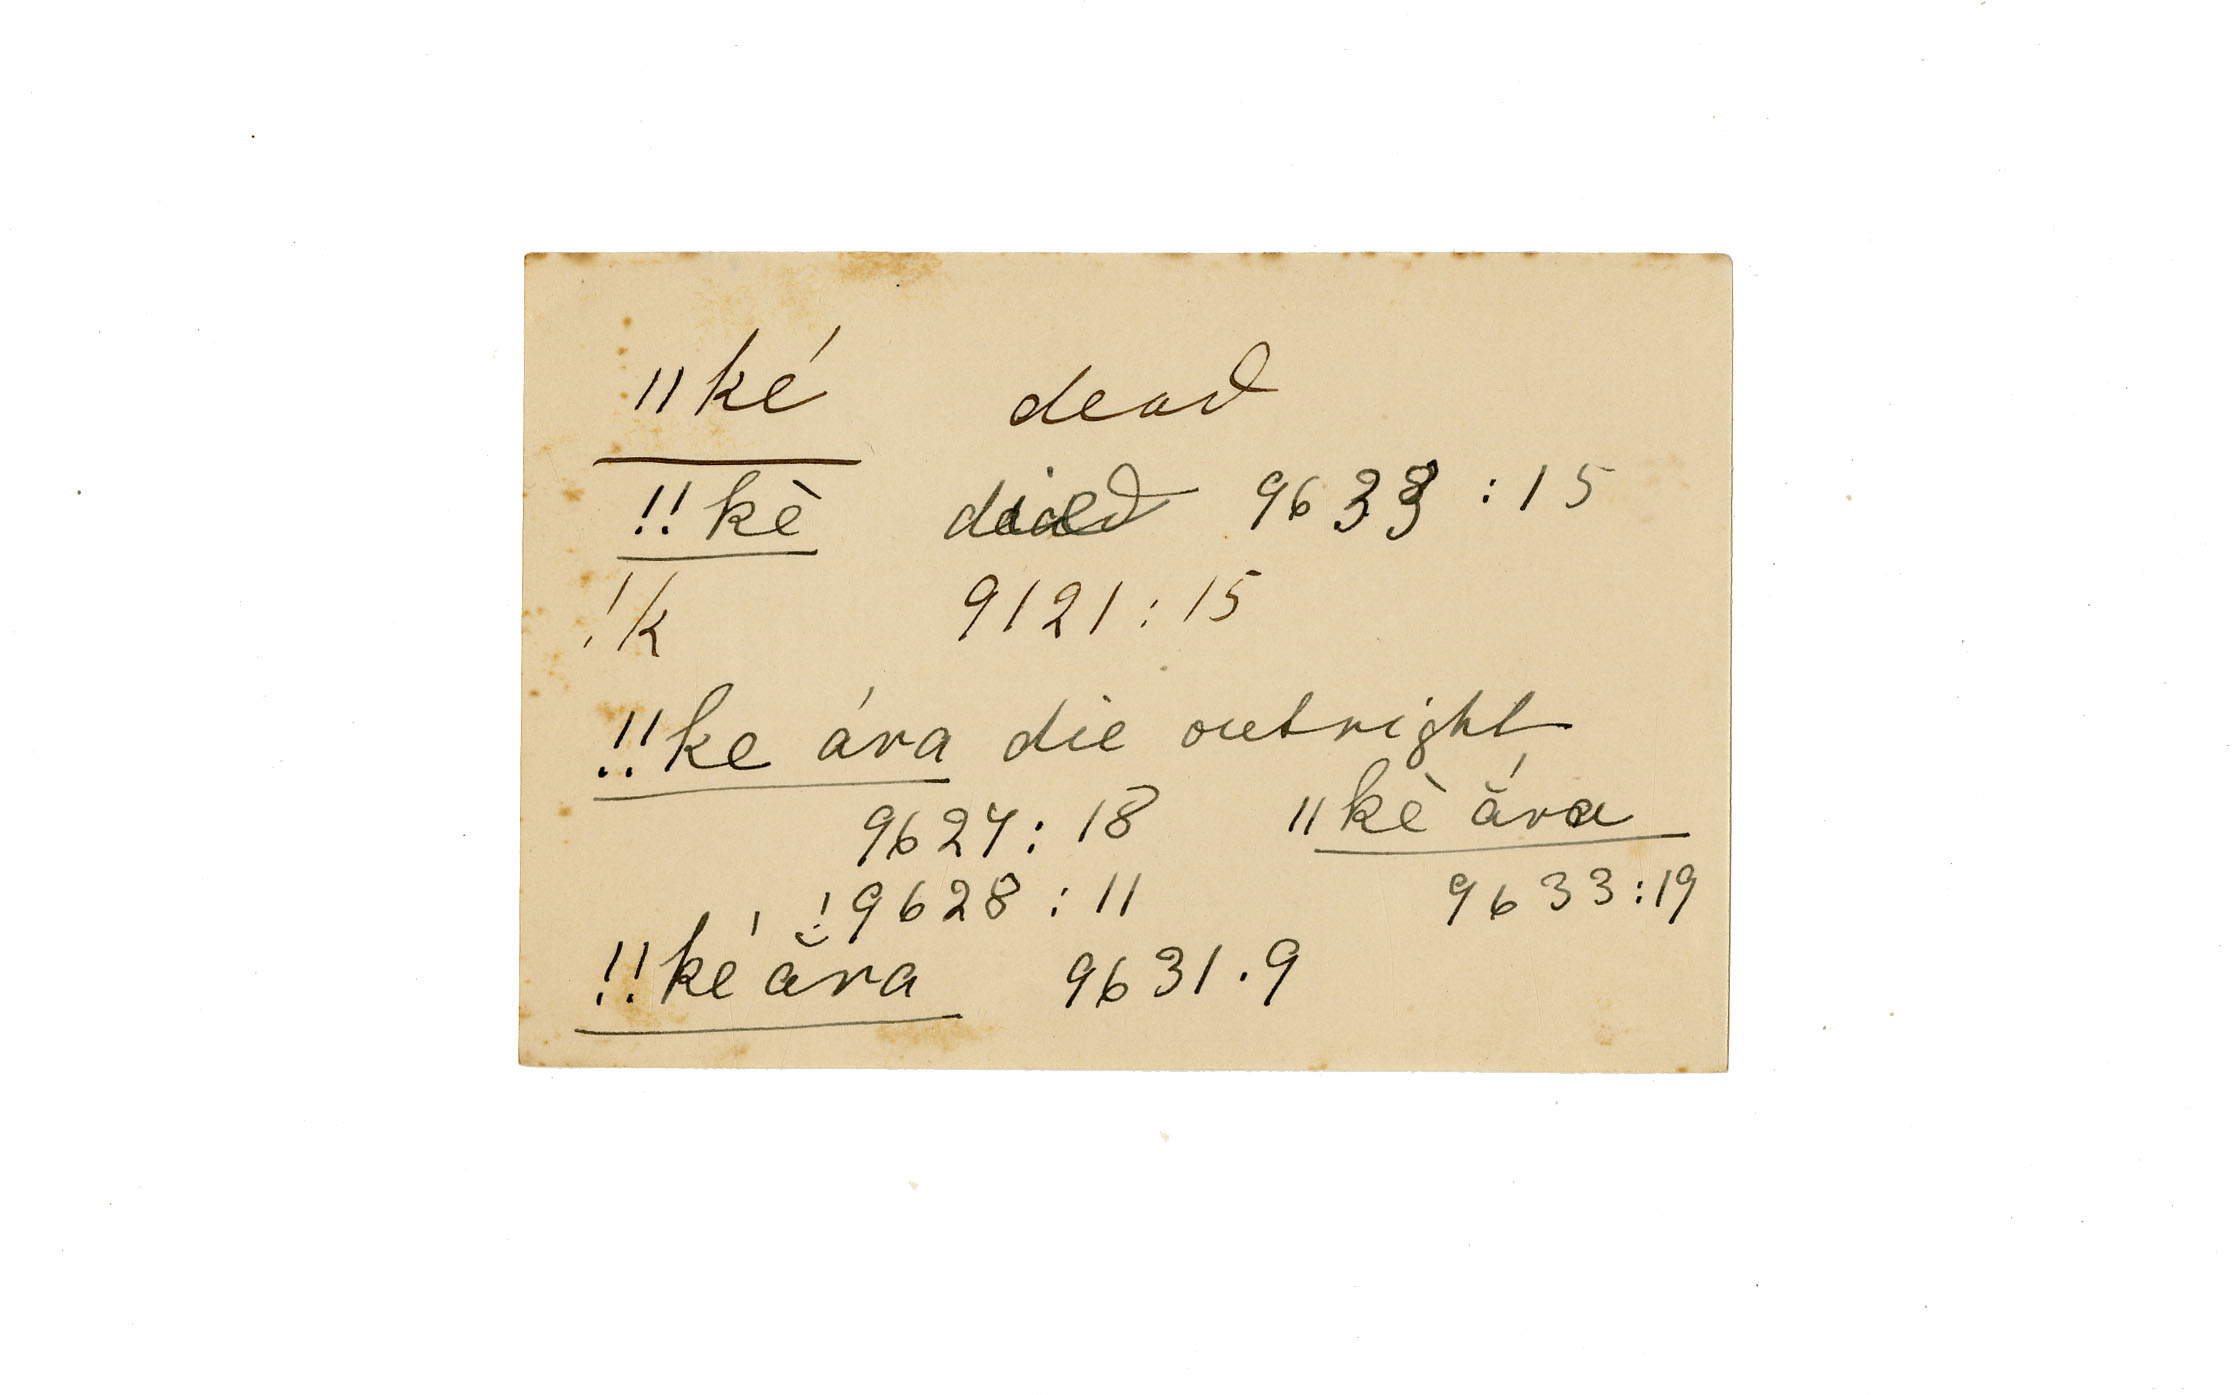 ǁké dead
!!kè died 9633 :15
!k 9121:15
!!ke ára die outright
9627:18 ǁkè ắra
!9628:11 9633:19
!!ké ắra 9631.9